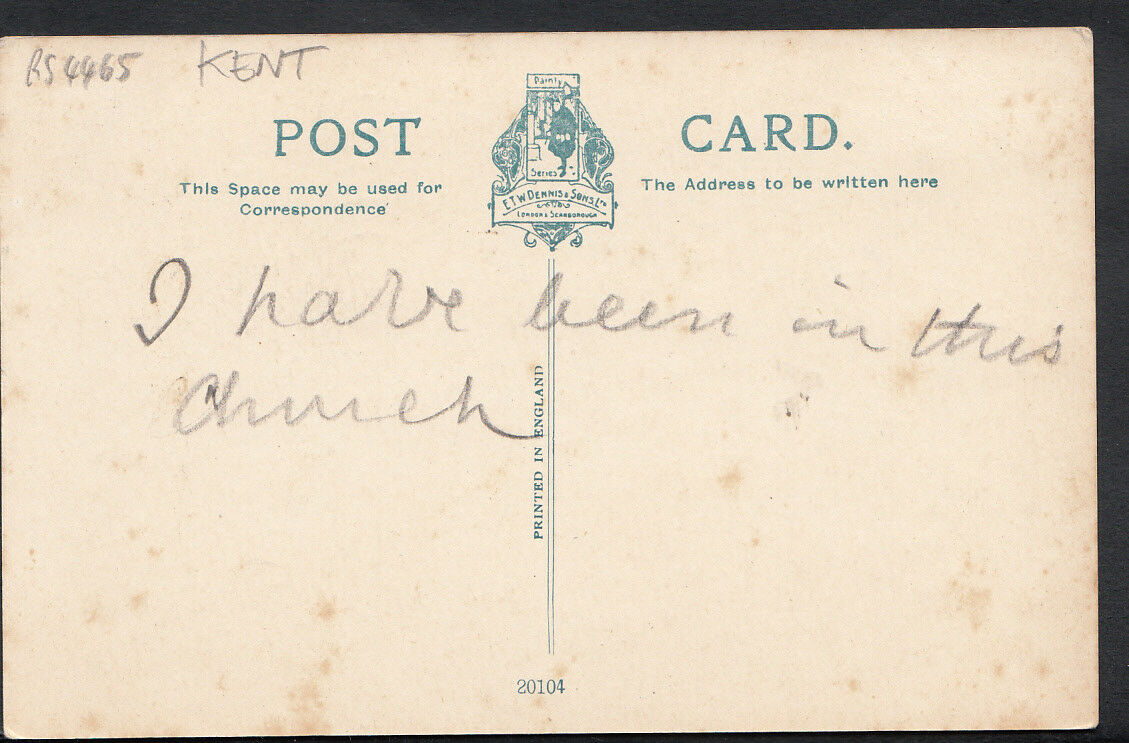 RS4465 KENT
POST CARD.
Dainty
Series
E.T.W. DENNIS & SONS LTD
LONDON & SCARBOROUGH
This Space may be used for
Correspondence
The Address to be written here
I have been in this
Church
PRINTED IN ENGLAND
20104